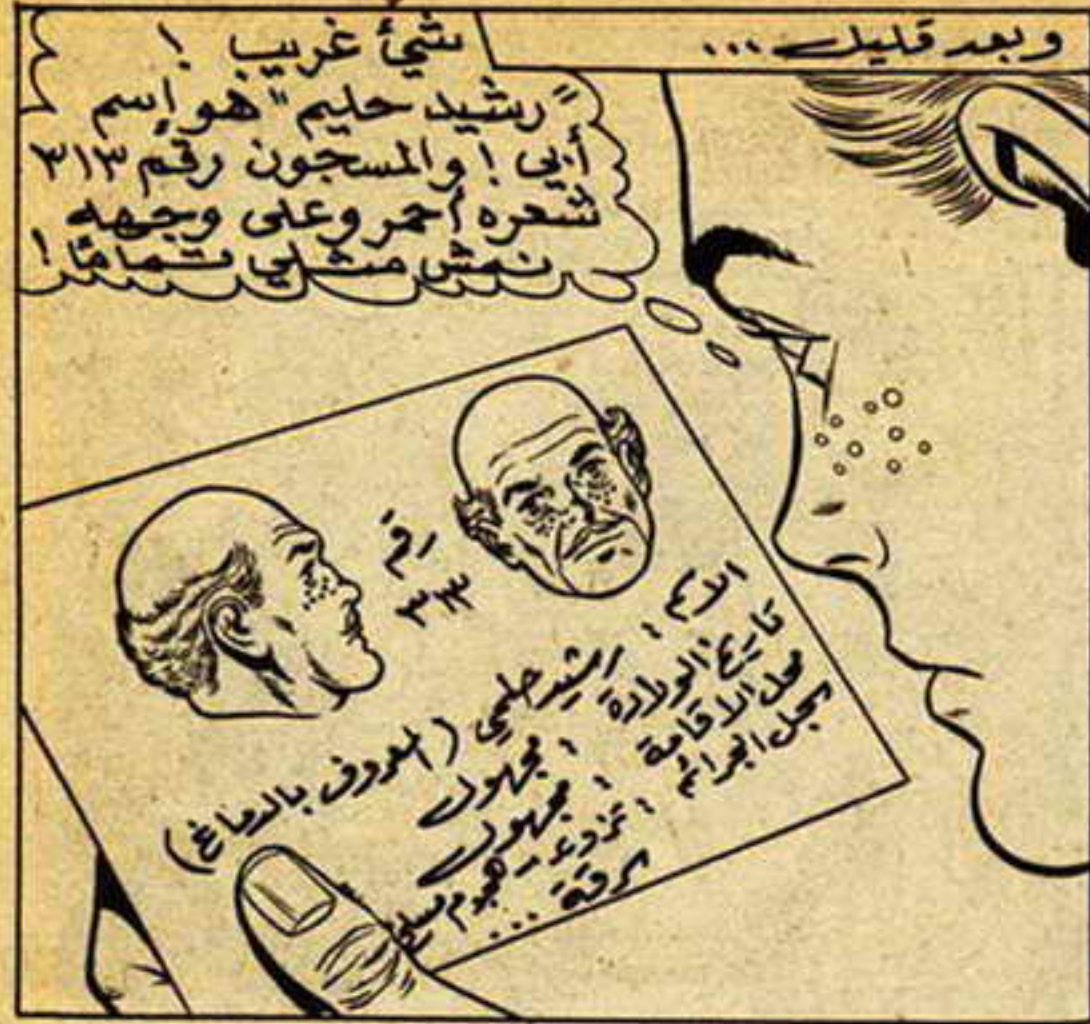 وبعد قليل...
شيئ غريب !
"رشيد حليم" هو إسم
أبي ! والمسجون رقم ٣١٣
شعره أحمر وعلى وجهه
نمش مثلي تمامًا !
رقم
٣١٣
الاسم : رشيد حلمي (المعروف بالدماغ)
تاريخ الولادة : مجهول
محل الاقامة : مجهول
سجل الجرائم : تزوير - هجوم مسلح
سرقة ...